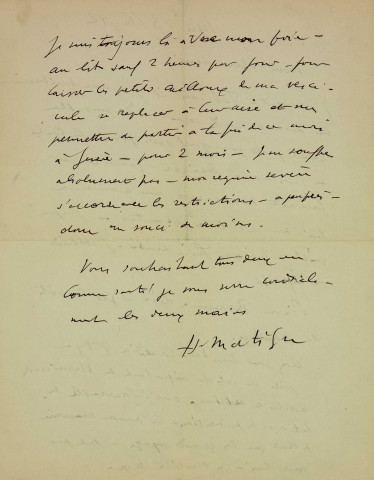 Je suis toujours là avec mon foie –
au lit sauf 2 heures par jour – pour
laisser les petits cailloux de ma vési-
cule se replacer à leur aise et me
permettre de partir à la fin de ce mois
à – pour 2 mois – je ne souffre
absolument pas – mon régime sévère
s'accorde avec les restrictions – à peu près –
donc un souci de moins.
Vous souhaitant tous deux en
bonne santé je vous serre cordiale-
ment les deux mains
H. Matisse